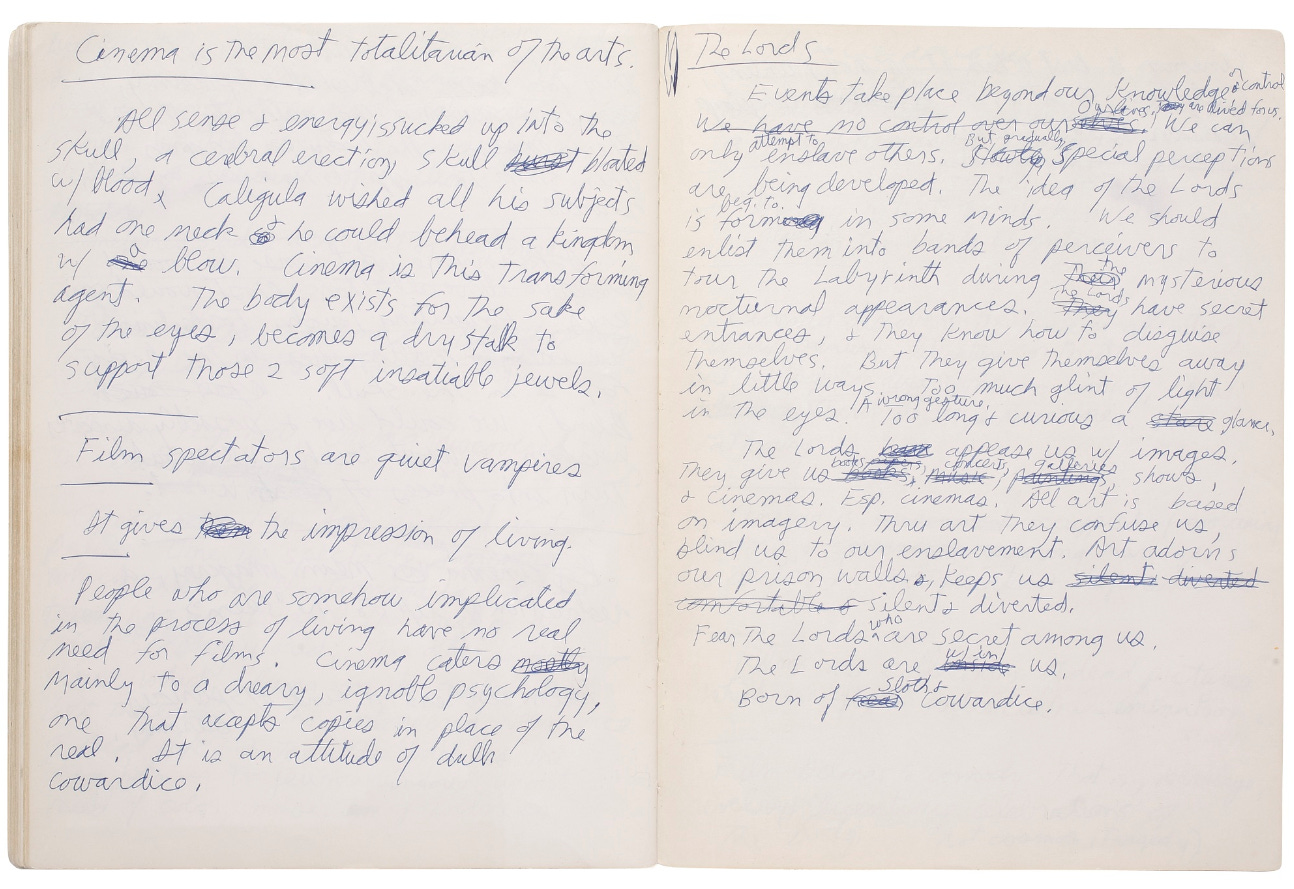 Cinema is the most totalitarian of the arts.
All sense & energy is sucked up into the
skull, a cerebral erection, skull bloated
w/ blood. Caligula wished all his subjects
had one neck so he could behead a kingdom
w/ a blow. Cinema is this transforming
agent. The body exists for the sake
of the eyes, becomes a dry stalk to
support those 2 soft insatiable jewels.
Film spectators are quiet vampires
It gives the impression of living.
People who are somehow implicated
in the process of living have no real
need for films. Cinema caters mostly
mainly to a dreary, ignoble psychology,
one that accepts copies in place of the
real. It is an attitude of dull
cowardice.
The Lords
Events take place beyond our knowledge or control
Our lives are lived for us.
We have no control over our We can
only attempt to enslave others. But, gradually, special perceptions
are being developed. The idea of the Lords
is beg. to form in some minds. We should
enlist them into bands of perceivers to
tour the Labyrinth during the mysterious
nocturnal appearances. The Lords have secret
entrances, & they know how to disguise
themselves. But they give themselves away
in little ways. Too much glint of light
in the eyes. A wrong gesture. Too long & curious a stare glance.
The Lords appease us w/ images.
They give us books, concerts, galleries, shows,
& cinemas. Esp. cinemas. All art is based
on imagery. Thru art they confuse us,
blind us to our enslavement. Art adorns
our prison walls, keeps us silent diverted
comfortable & silent & diverted.
Fear The Lords who are secret among us.
The Lords are w/in us.
Born of Sloth & Cowardice.